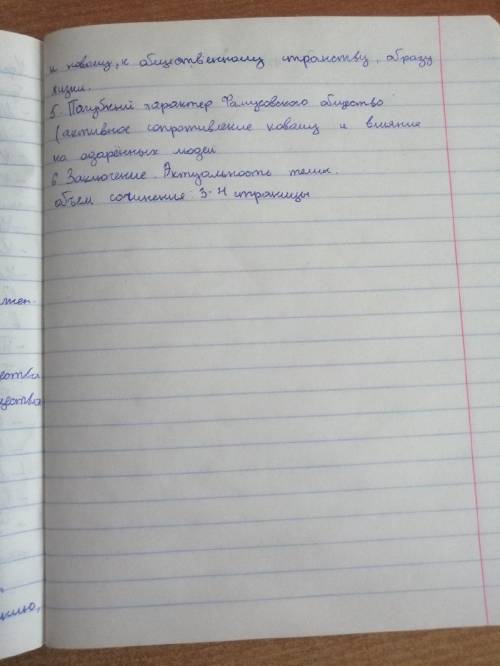 к новому, к общественному странству, образу
жизни.
5. Пагубный характер Фамусовского общество
(активное сопротивление новому и влияние
на одарённых людей
6. Заключение. Актуальность темы.
объем сочинения: 3-4 страницы
жен.
ества
щества